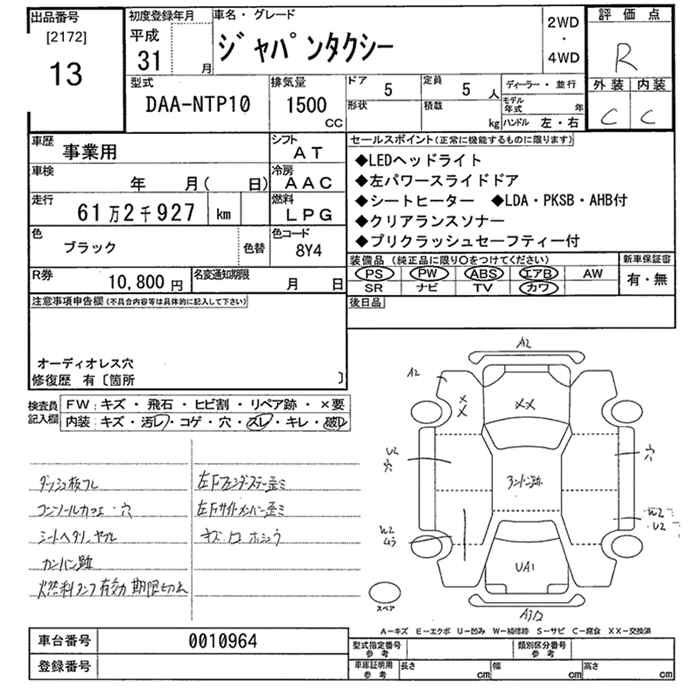 出品番号
[2172]
13
初度登録年月
平成
31
月
車名・グレード
ジャパンタクシー
2WD
・
4WD
評価点
R
外装 内装
C C
型式
DAA-NTP10
排気量
1500
CC
ドア
5
定員
5 人
形状
積載
kg
ディーラー・並行
モデル年式
年
ハンドル 左・右
車歴
事業用
シフト
AT
車検
年 月( 日)
冷房
AAC
走行
61万2千927 km
燃料
LPG
色
ブラック
色替
色コード
8Y4
R券
10,800 円
名変通知期限
月 日
セールスポイント(正常に機能するものに限ります)
◆LEDヘッドライト
◆左パワースライドドア
◆シートヒーター ◆LDA・PKSB・AHB付
◆クリアランスソナー
◆プリクラッシュセーフティー付
装備品 (純正品に限り○をつけてください)
新車保証書
PS PW ABS エアB AW
有・無
SR ナビ TV カワ
後日品
注意事項申告欄(不具合内容等は具体的に記入して下さい)
オーディオレス穴
修復歴 有〔箇所 〕
検査員記入欄
FW:キズ・飛石・ヒビ割・リペア跡・×要
内装:キズ・汚レ・コゲ・穴・スレ・キレ・破レ
ダッシュ板フレ
コンソールカフェ・穴
シートヘタリ、ヤブレ
カンバン跡
燃料タンク有効期限切ム
左Fフェンダーステー歪ミ
左Fサイドメンバー歪ミ
A2
A2
XX
XX
U2
穴
アンドン跡
穴
W2
U2
W2
UA1
スペア
A-キズ E-エクボ U-凹み W-補修跡 S-サビ C-腐食 XX-交換済
車台番号
0010964
登録番号
型式指定番号
参考
類別区分番号
参考
車庫証明用
参考
長さ
cm
幅
cm
高さ
cm